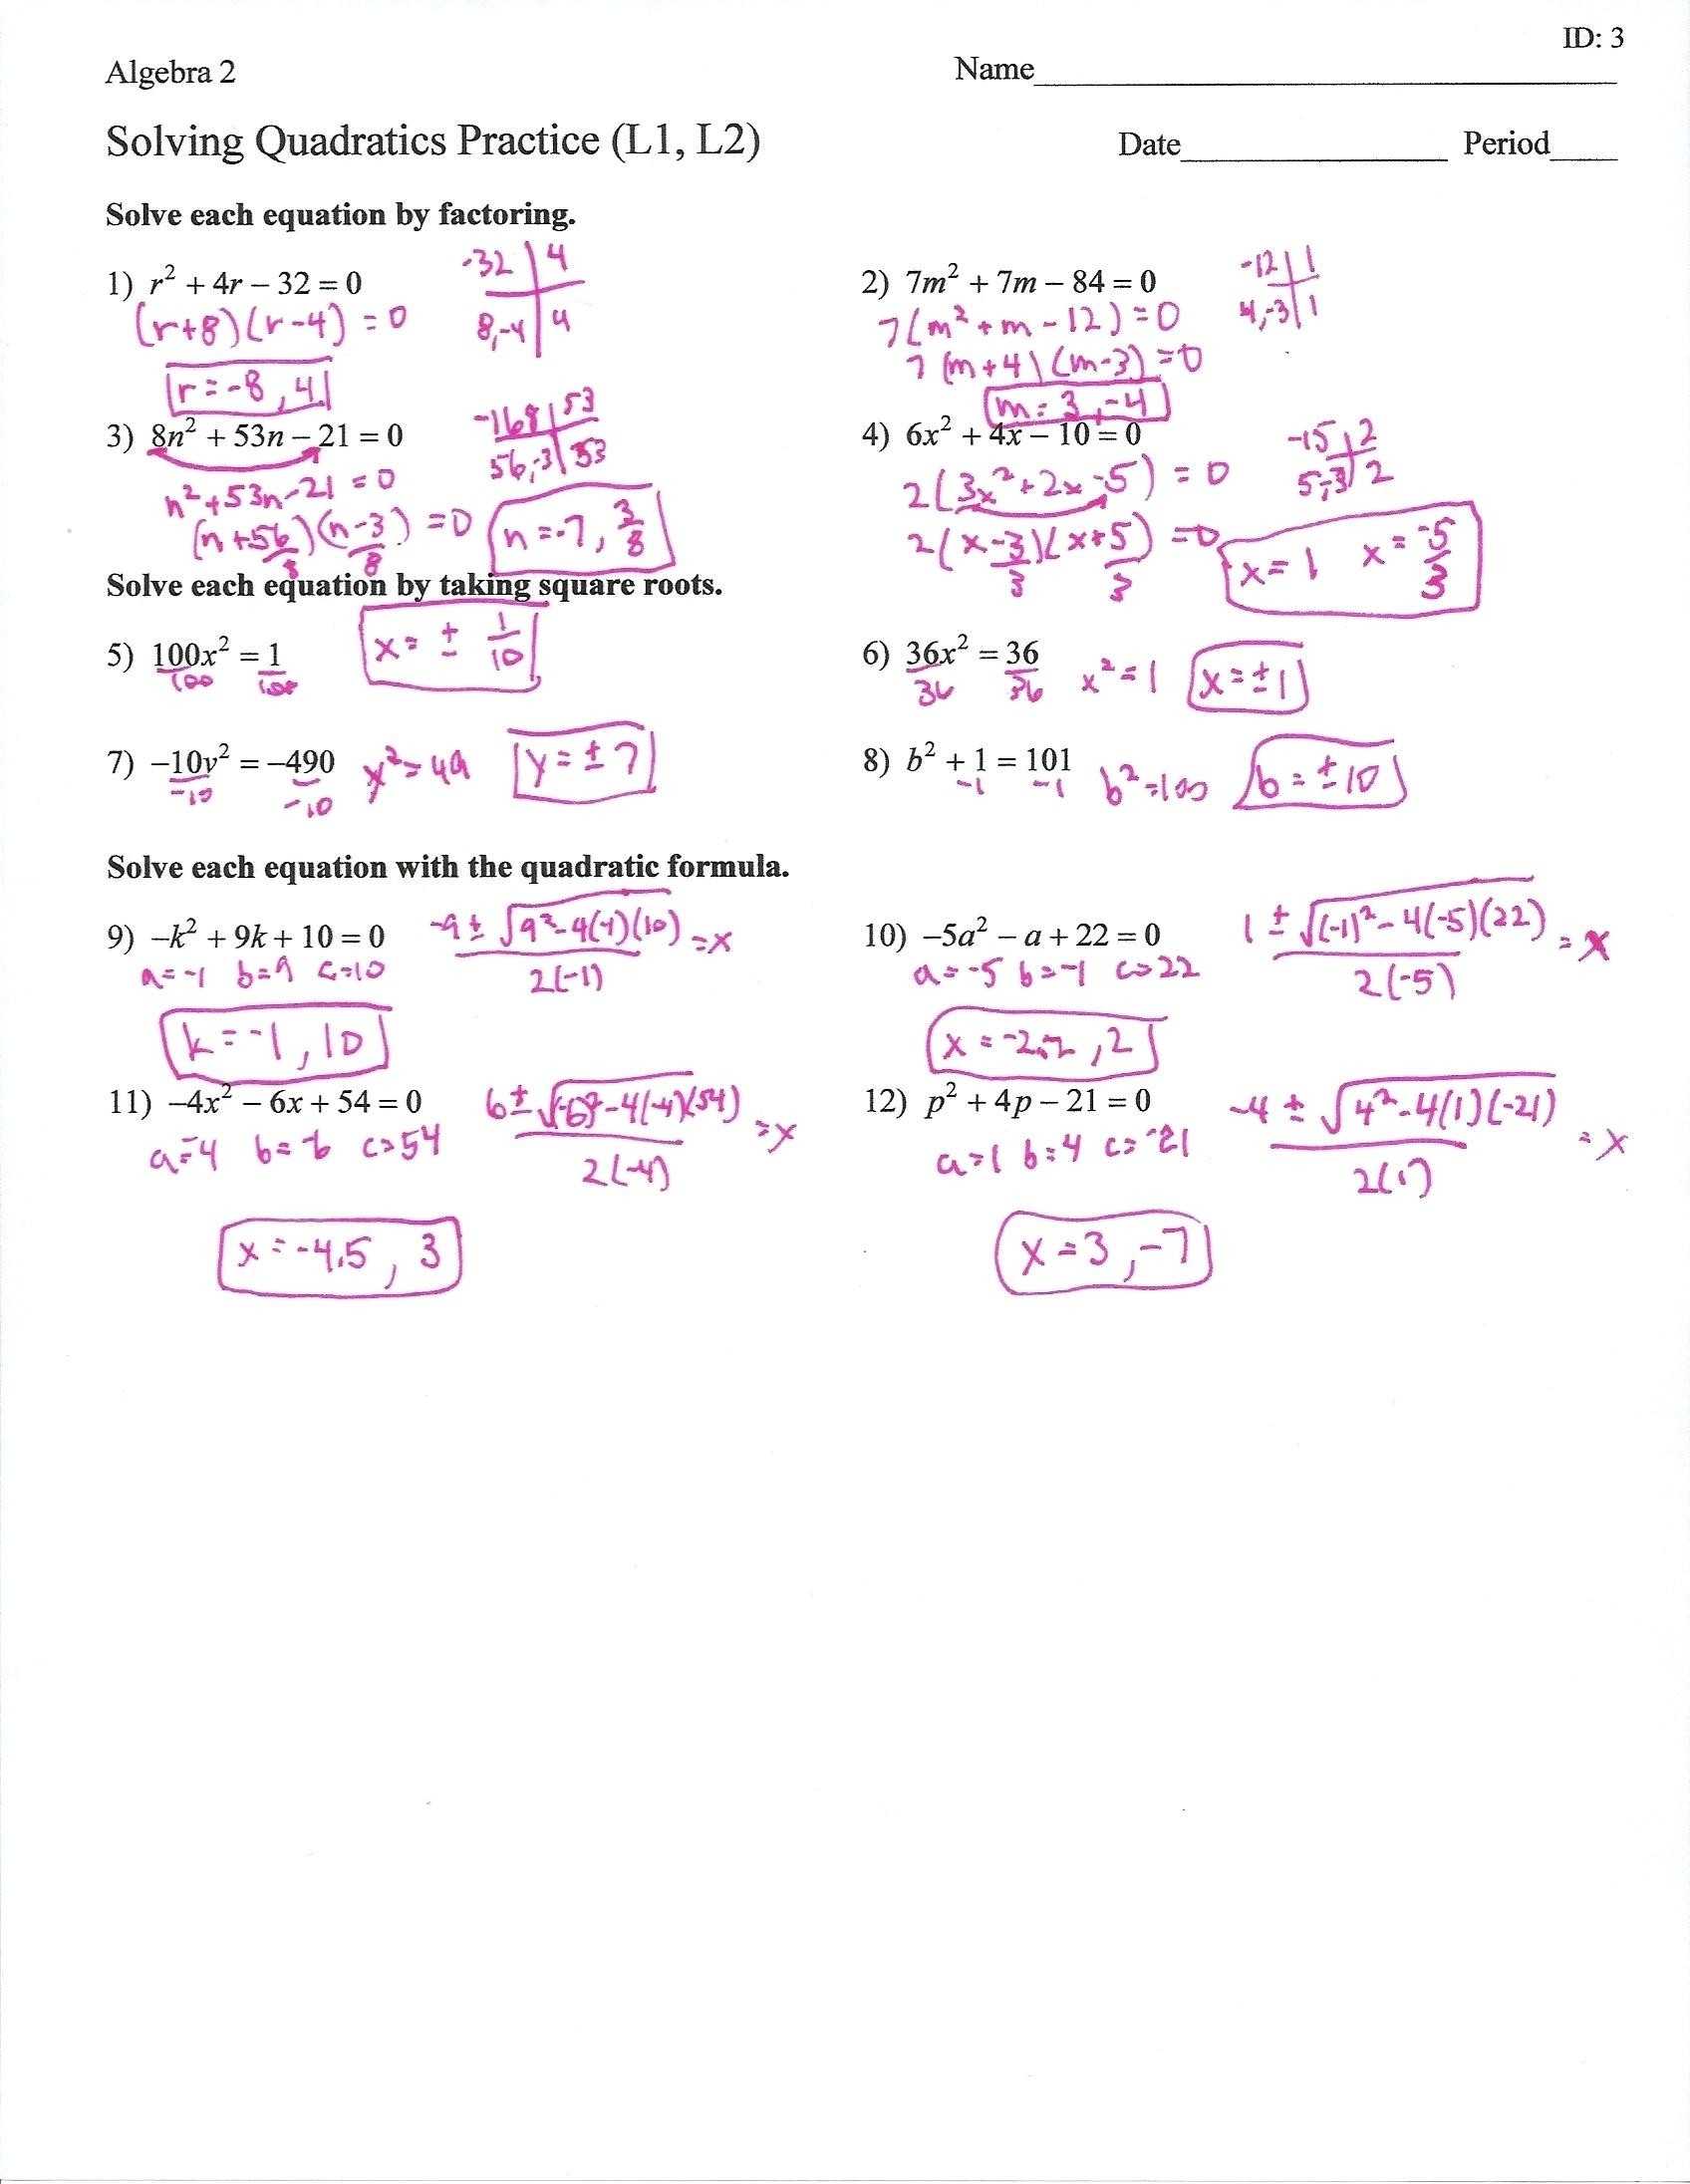 ID: 3
Algebra 2 Name
Solving Quadratics Practice (L1, L2) Date Period
Solve each equation by factoring.
1) r² + 4r – 32 = 0
-32 4
8,-4 4
(r+8)(r-4) = 0
r = -8, 4
2) 7m² + 7m – 84 = 0
-12 1
4,-3 1
7(m²+m-12)=0
7(m+4)(m-3)=0
m = 3, -4
3) 8n² + 53n – 21 = 0
-168 53
56,-3 53
n²+53n-21=0
(n+56/8)(n-3/8)=0
n=-7, 3/8
4) 6x² + 4x – 10 = 0
-15 2
5,-3 2
2(3x²+2x-5)=0
2(x-3/3)(x+5/3)=0
x=1 x=-5/3
Solve each equation by taking square roots.
5) 100x² = 1
100 100
x= ± 1/10
6) 36x² = 36
36 36
x²=1
x=±1
7) –10v² = –490
-10 -10
y²=49
y=±7
8) b² + 1 = 101
-1 -1
b²=100
b=±10
Solve each equation with the quadratic formula.
9) –k² + 9k + 10 = 0
a=-1 b=9 c=10
-9±√9²-4(-1)(10) =x
2(-1)
k=-1, 10
10) –5a² – a + 22 = 0
a=-5 b=-1 c=22
1±√(-1)²-4(-5)(22) =x
2(-5)
x=-2.2, 2
11) –4x² – 6x + 54 = 0
a=-4 b=-6 c=54
6±√(-6)²-4(-4)(54) =x
2(-4)
x=-4.5, 3
12) p² + 4p – 21 = 0
a=1 b=4 c=-21
-4±√4²-4(1)(-21) =x
2(1)
x=3, -7